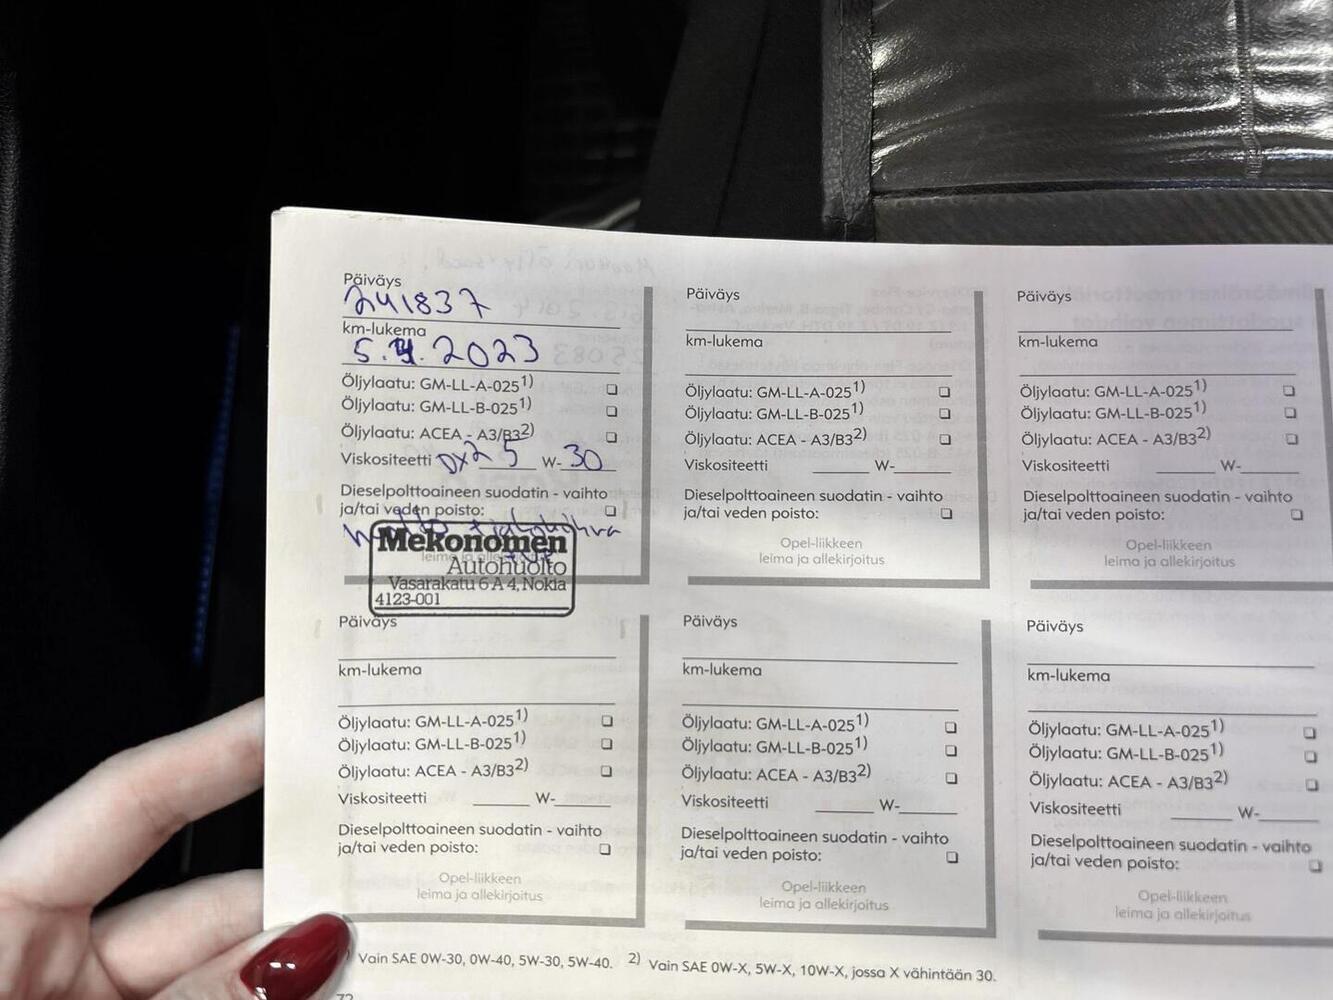 Päiväys
241837
km-lukema
5.4.2023
Öljylaatu: GM-LL-A-025¹⁾ ❏
Öljylaatu: GM-LL-B-025¹⁾ ❏
Öljylaatu: ACEA - A3/B3²⁾ ❏
Viskositeetti DX2 5 W-30
Dieselpolttoaineen suodatin - vaihto
ja/tai veden poisto: ❏
Mekonomen
Autohuolto
Vasarakatu 6 A 4, Nokia
4123-001
Päiväys
km-lukema
Öljylaatu: GM-LL-A-025¹⁾ ❏
Öljylaatu: GM-LL-B-025¹⁾ ❏
Öljylaatu: ACEA - A3/B3²⁾ ❏
Viskositeetti ____ W-____
Dieselpolttoaineen suodatin - vaihto
ja/tai veden poisto: ❏
Opel-liikkeen
leima ja allekirjoitus
Päiväys
km-lukema
Öljylaatu: GM-LL-A-025¹⁾ ❏
Öljylaatu: GM-LL-B-025¹⁾ ❏
Öljylaatu: ACEA - A3/B3²⁾ ❏
Viskositeetti ____ W-____
Dieselpolttoaineen suodatin - vaihto
ja/tai veden poisto: ❏
Opel-liikkeen
leima ja allekirjoitus
Päiväys
km-lukema
Öljylaatu: GM-LL-A-025¹⁾ ❏
Öljylaatu: GM-LL-B-025¹⁾ ❏
Öljylaatu: ACEA - A3/B3²⁾ ❏
Viskositeetti ____ W-____
Dieselpolttoaineen suodatin - vaihto
ja/tai veden poisto: ❏
Opel-liikkeen
leima ja allekirjoitus
Päiväys
km-lukema
Öljylaatu: GM-LL-A-025¹⁾ ❏
Öljylaatu: GM-LL-B-025¹⁾ ❏
Öljylaatu: ACEA - A3/B3²⁾ ❏
Viskositeetti ____ W-____
Dieselpolttoaineen suodatin - vaihto
ja/tai veden poisto: ❏
Opel-liikkeen
leima ja allekirjoitus
Päiväys
km-lukema
Öljylaatu: GM-LL-A-025¹⁾ ❏
Öljylaatu: GM-LL-B-025¹⁾ ❏
Öljylaatu: ACEA - A3/B3²⁾ ❏
Viskositeetti ____ W-____
Dieselpolttoaineen suodatin - vaihto
ja/tai veden poisto: ❏
Opel-liikkeen
leima ja allekirjoitus
Vain SAE 0W-30, 0W-40, 5W-30, 5W-40. ²⁾ Vain SAE 0W-X, 5W-X, 10W-X, jossa X vähintään 30.